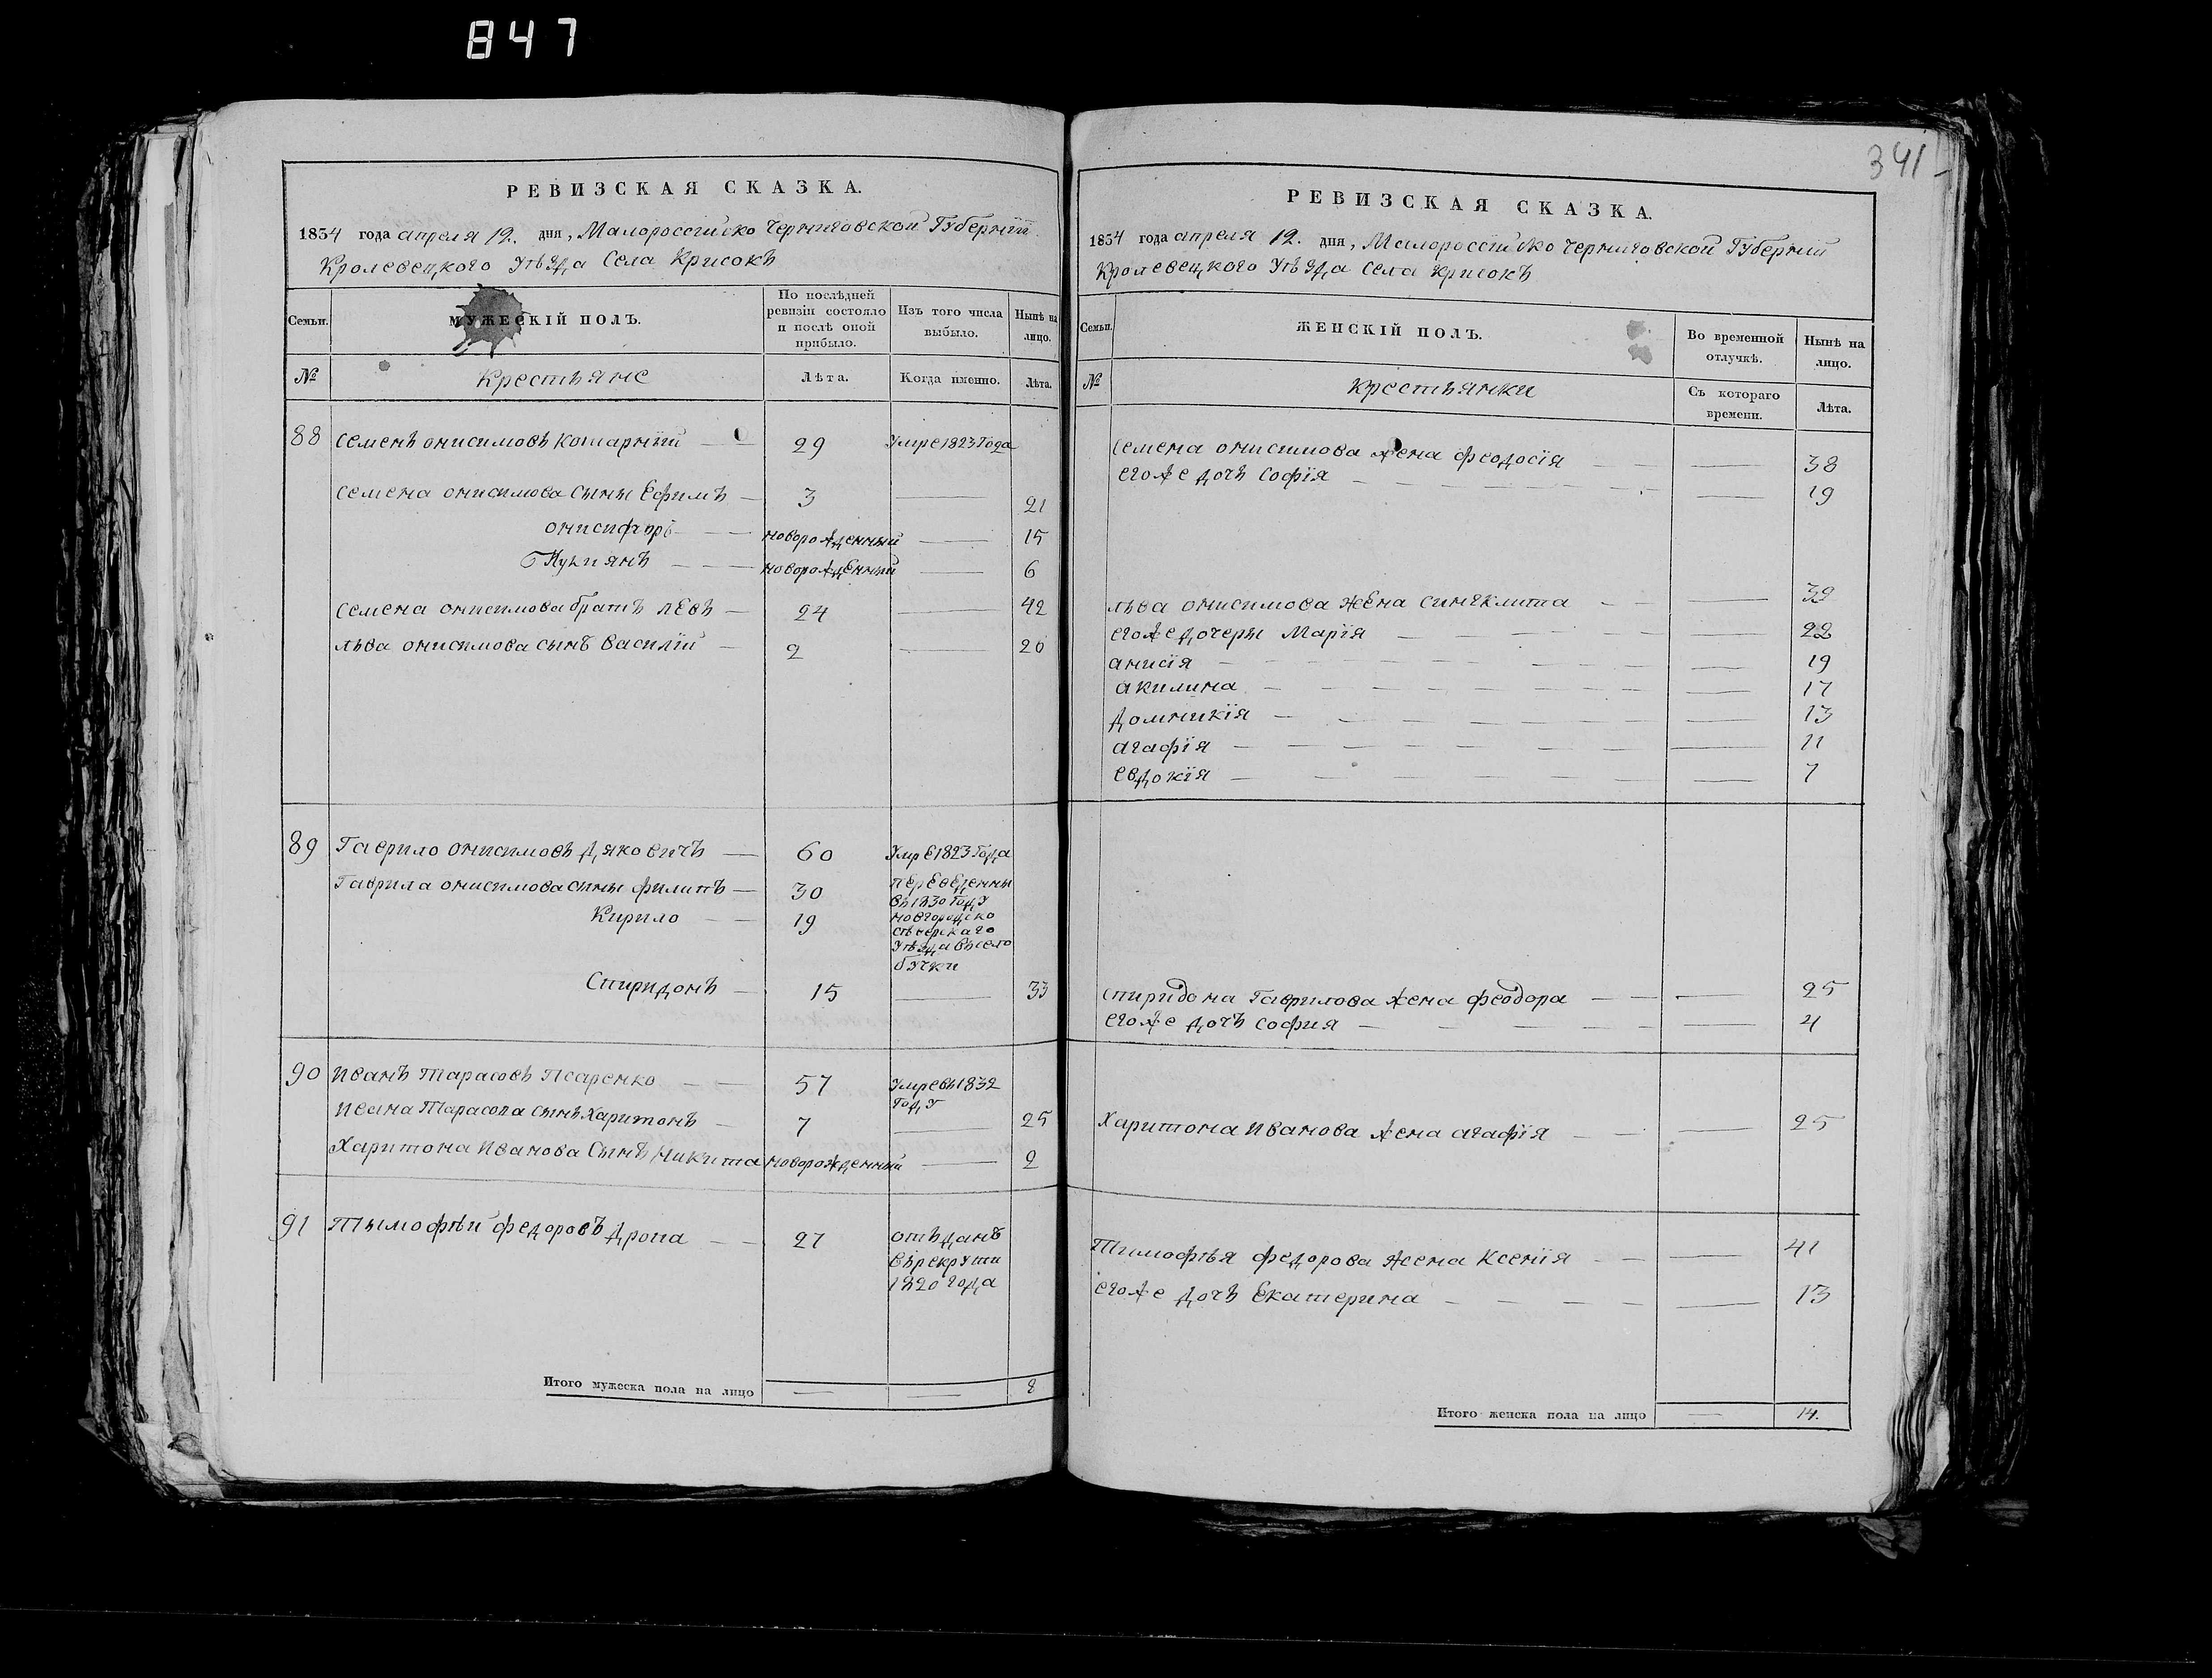 847
341
РЕВИЗСКАЯ СКАЗКА.
1834 года апреля 12. дня, Малороссийско Черниговской Губернїи
Кролевецкого Уѣзда Села Крисокъ
Семьи.
МУЖЕСКІЙ ПОЛЪ.
По послѣдней ревизіи состояло и послѣ оной прибыло.
Изъ того числа выбыло.
Нынѣ на лицо.
№
Крестьяне
Лѣта.
Когда именно.
Лѣта.
88 Семенъ онисимовъ Кошарнїй — 29 Умре 1823 Года
Семена онисимова сыны Ефимъ — 3 — 21
онисифоръ — новорожденный — 15
— новорожденный — 6
Семена онисимова братъ лЕвъ — 24 — 42
льва онисимова сынъ василїй — 2 — 20
89 Гаврило онисимовъ Дяковичъ — 60 Умре 1823 Года
Гаврила онисимова сыны филипъ — 30 переведенны
въ 1830 Году
Кирило — 19 новгородско
сѣверкаго
Уѣзда въ село
бучки
Спиридонъ — 15 — 33
90 Иванъ Тарасовъ Псаренко — 57 Умре въ 1832
Году
Ивана Тарасова сынъ Харитонъ — 7 — 25
Харитона Иванова Сынъ Никита новорожденный — 2
91 Тымофѣй федоровъ Дропа — 27 отъданъ
въ рекруты
1820 года
Итого мужеска пола на лицо — — 8
РЕВИЗСКАЯ СКАЗКА.
1834 года апреля 12. дня, Малороссїйско Черниговской Губернїи
Кролевецкого Уѣзда Села Крисокъ
Семьи.
ЖЕНСКІЙ ПОЛЪ.
Во временной отлучкѣ.
Нынѣ на лицо.
№
Крестьянки
Съ котораго времени.
Лѣта.
Семена онисимова жена феодосїя — — 38
егоже дочь Софїя — — 19
льва онисимова жена синъклита — — 39
егоже дочеры Марїя — — 22
анисїя — — 19
акилина — — 17
Домникїя — — 13
агафїя — — 11
евдокїя — — 7
Спиридона Гаврилова жена феодора — — 25
егоже дочь софия — — 4
Харитона Иванова жена агафїя — — 25
Тимофѣя федорова жена Ксенїя — — 41
егоже дочь Екатерина — — 13
Итого женска пола на лицо — 14.